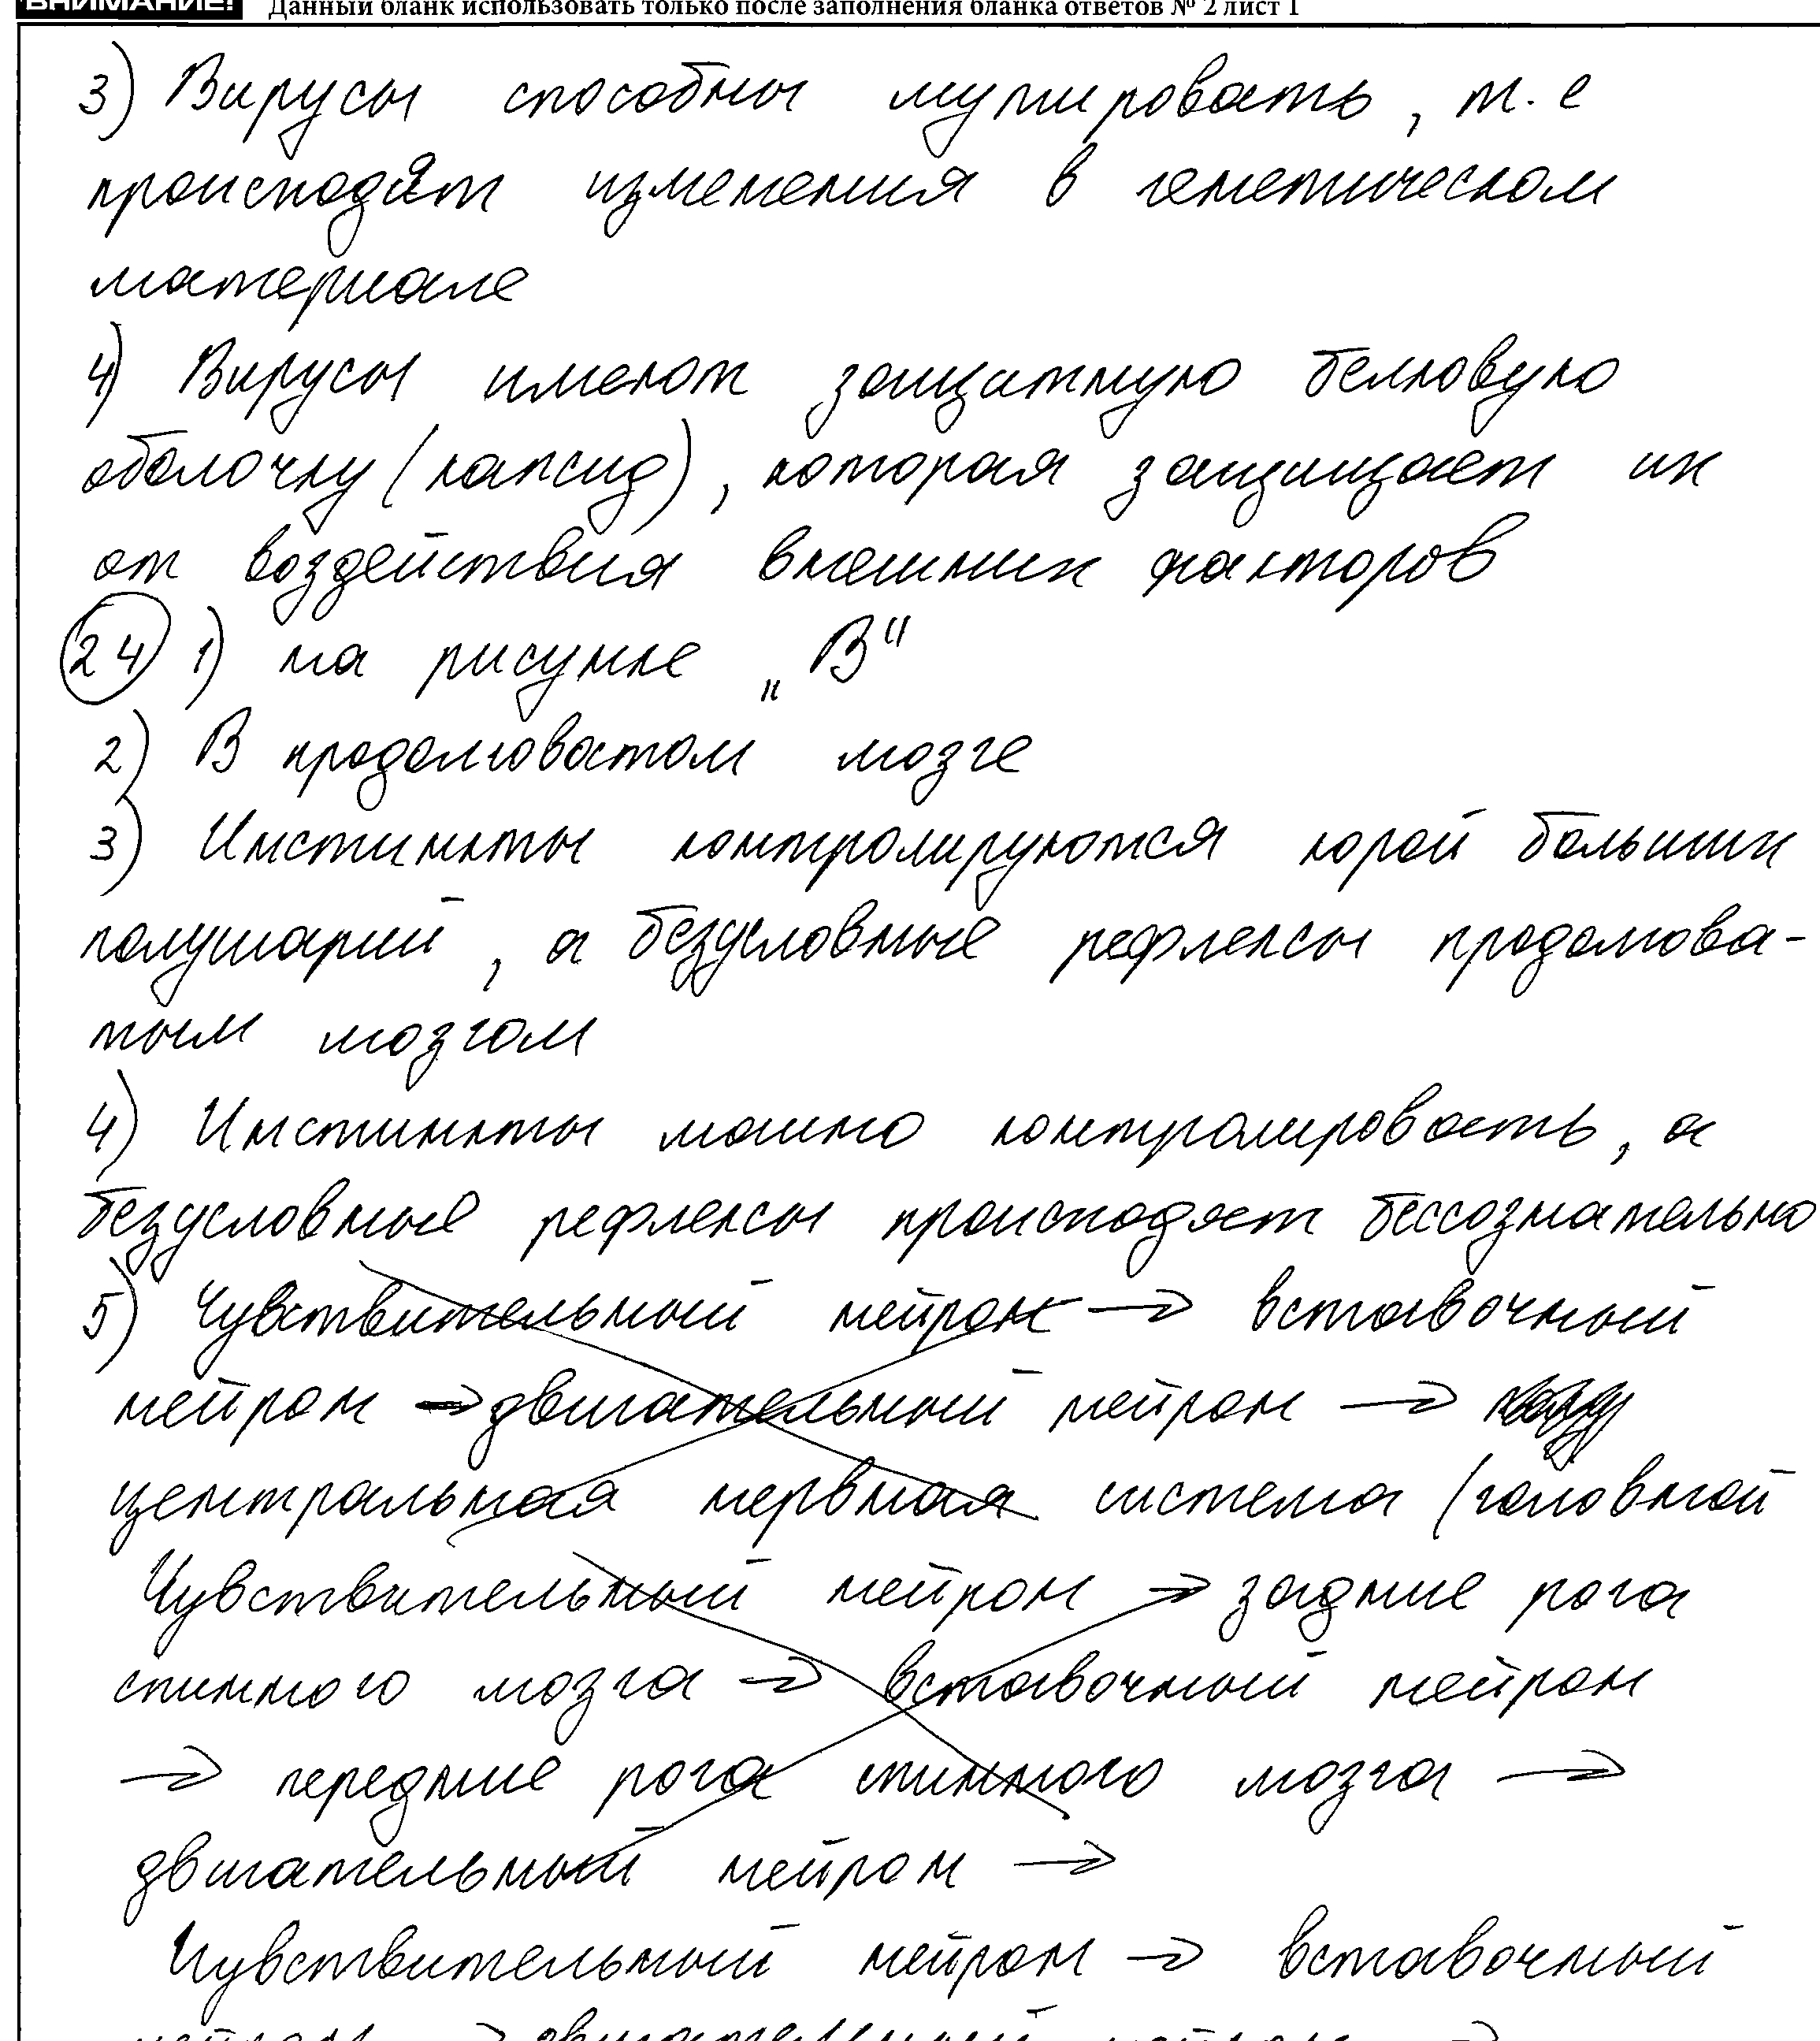 ВНИМАНИЕ! Данный бланк использовать только после заполнения бланка ответов № 2 лист 1
3) Вирусы способны мутировать, т.е
происходят изменения в генетическом
материале
4) Вирусы имеют защитную белковую
оболочку (капсид), которая защищает их
от воздействия внешних факторов
24 1) на рисунке „В“
2) В продолговатом мозге
3) Инстинкты контролируются корой больших
полушарий, а безусловные рефлексы продолгова-
тым мозгом
4) Инстинкты можно контролировать, а
безусловные рефлексы происходят бессознательно
5) Чувствительный нейрон → вставочный
нейрон → двигательный нейрон →
центральная нервная система (головной
Чувствительный нейрон → задние рога
спинного мозга → вставочный нейрон
→ передние рога спинного мозга →
двигательный нейрон →
Чувствительный нейрон → вставочный
нейрон → двигательный нейрон →